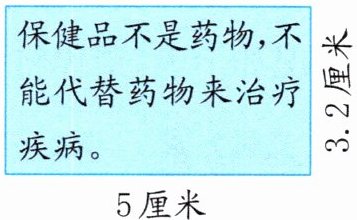 保健品不是药物,不
能代替药物来治疗
疾病。
3.2厘米
5厘米